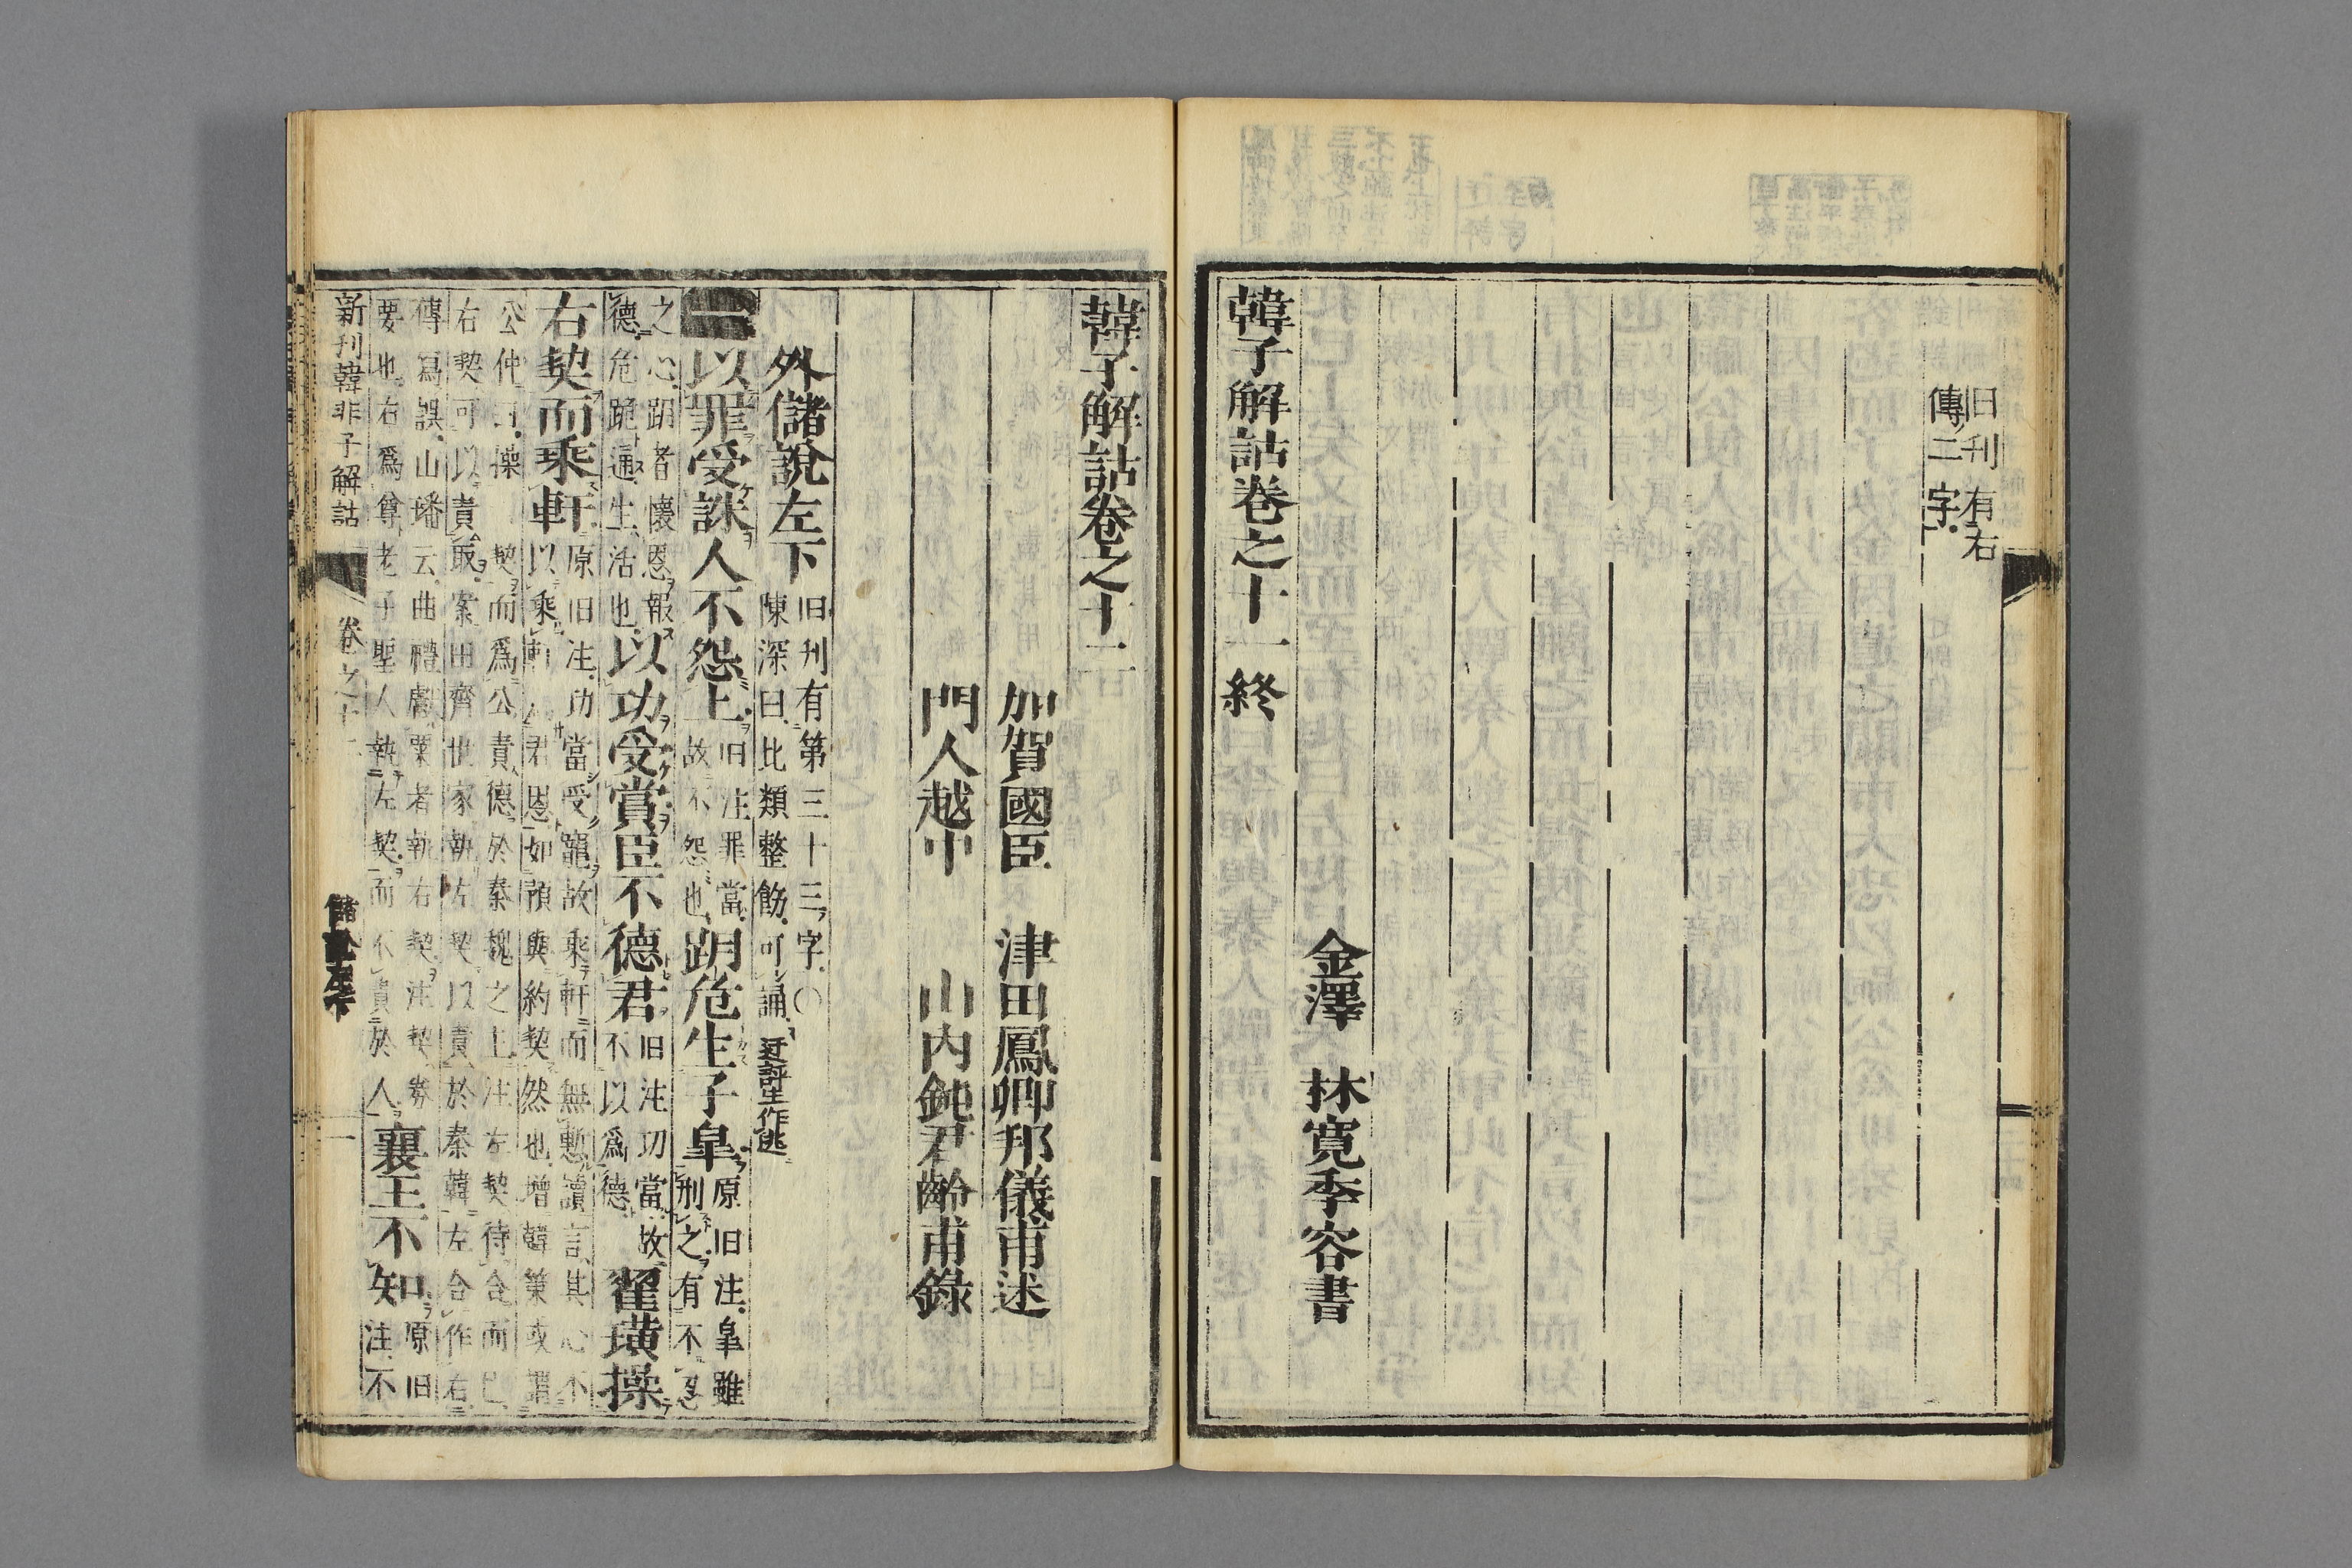 旧刊有右
傳二字
金澤 林寬季容書
韓子解詁卷之十一終
韓子解詁卷之十二
加賀國臣 津田鳳卿邦儀甫述
門人越中 山內鈍君齡甫錄
外儲說左下
旧刊有第三十三字〇
陳深曰比類整飭可誦
迂評生作逃
一以罪受誅人不怨上
旧注罪當
故不怨也
跀危生子皐
原旧注皐雖
刑之有不忍
之心跀者懷恩報
德危跪通生活也
以功受賞臣不德君
旧注功當故
不以爲德
翟璜操
右契而乘軒
原旧注功當受寵故乘軒而無慙讀言其心不
以乘軒爲君恩如預與約契然也增韓策或謂
公仲曰操
契而爲公責德於秦魏之主注左契待合而已
右契可以責取案田齊世家執左契以責於秦韓左合作右
傳寫誤山璠云曲禮獻粟者執右契注契券
要也右爲尊老子聖人執左契而不責於人
襄王不知
原旧
注不
新刊韓非子解詁 卷之十二 儲說左下 一